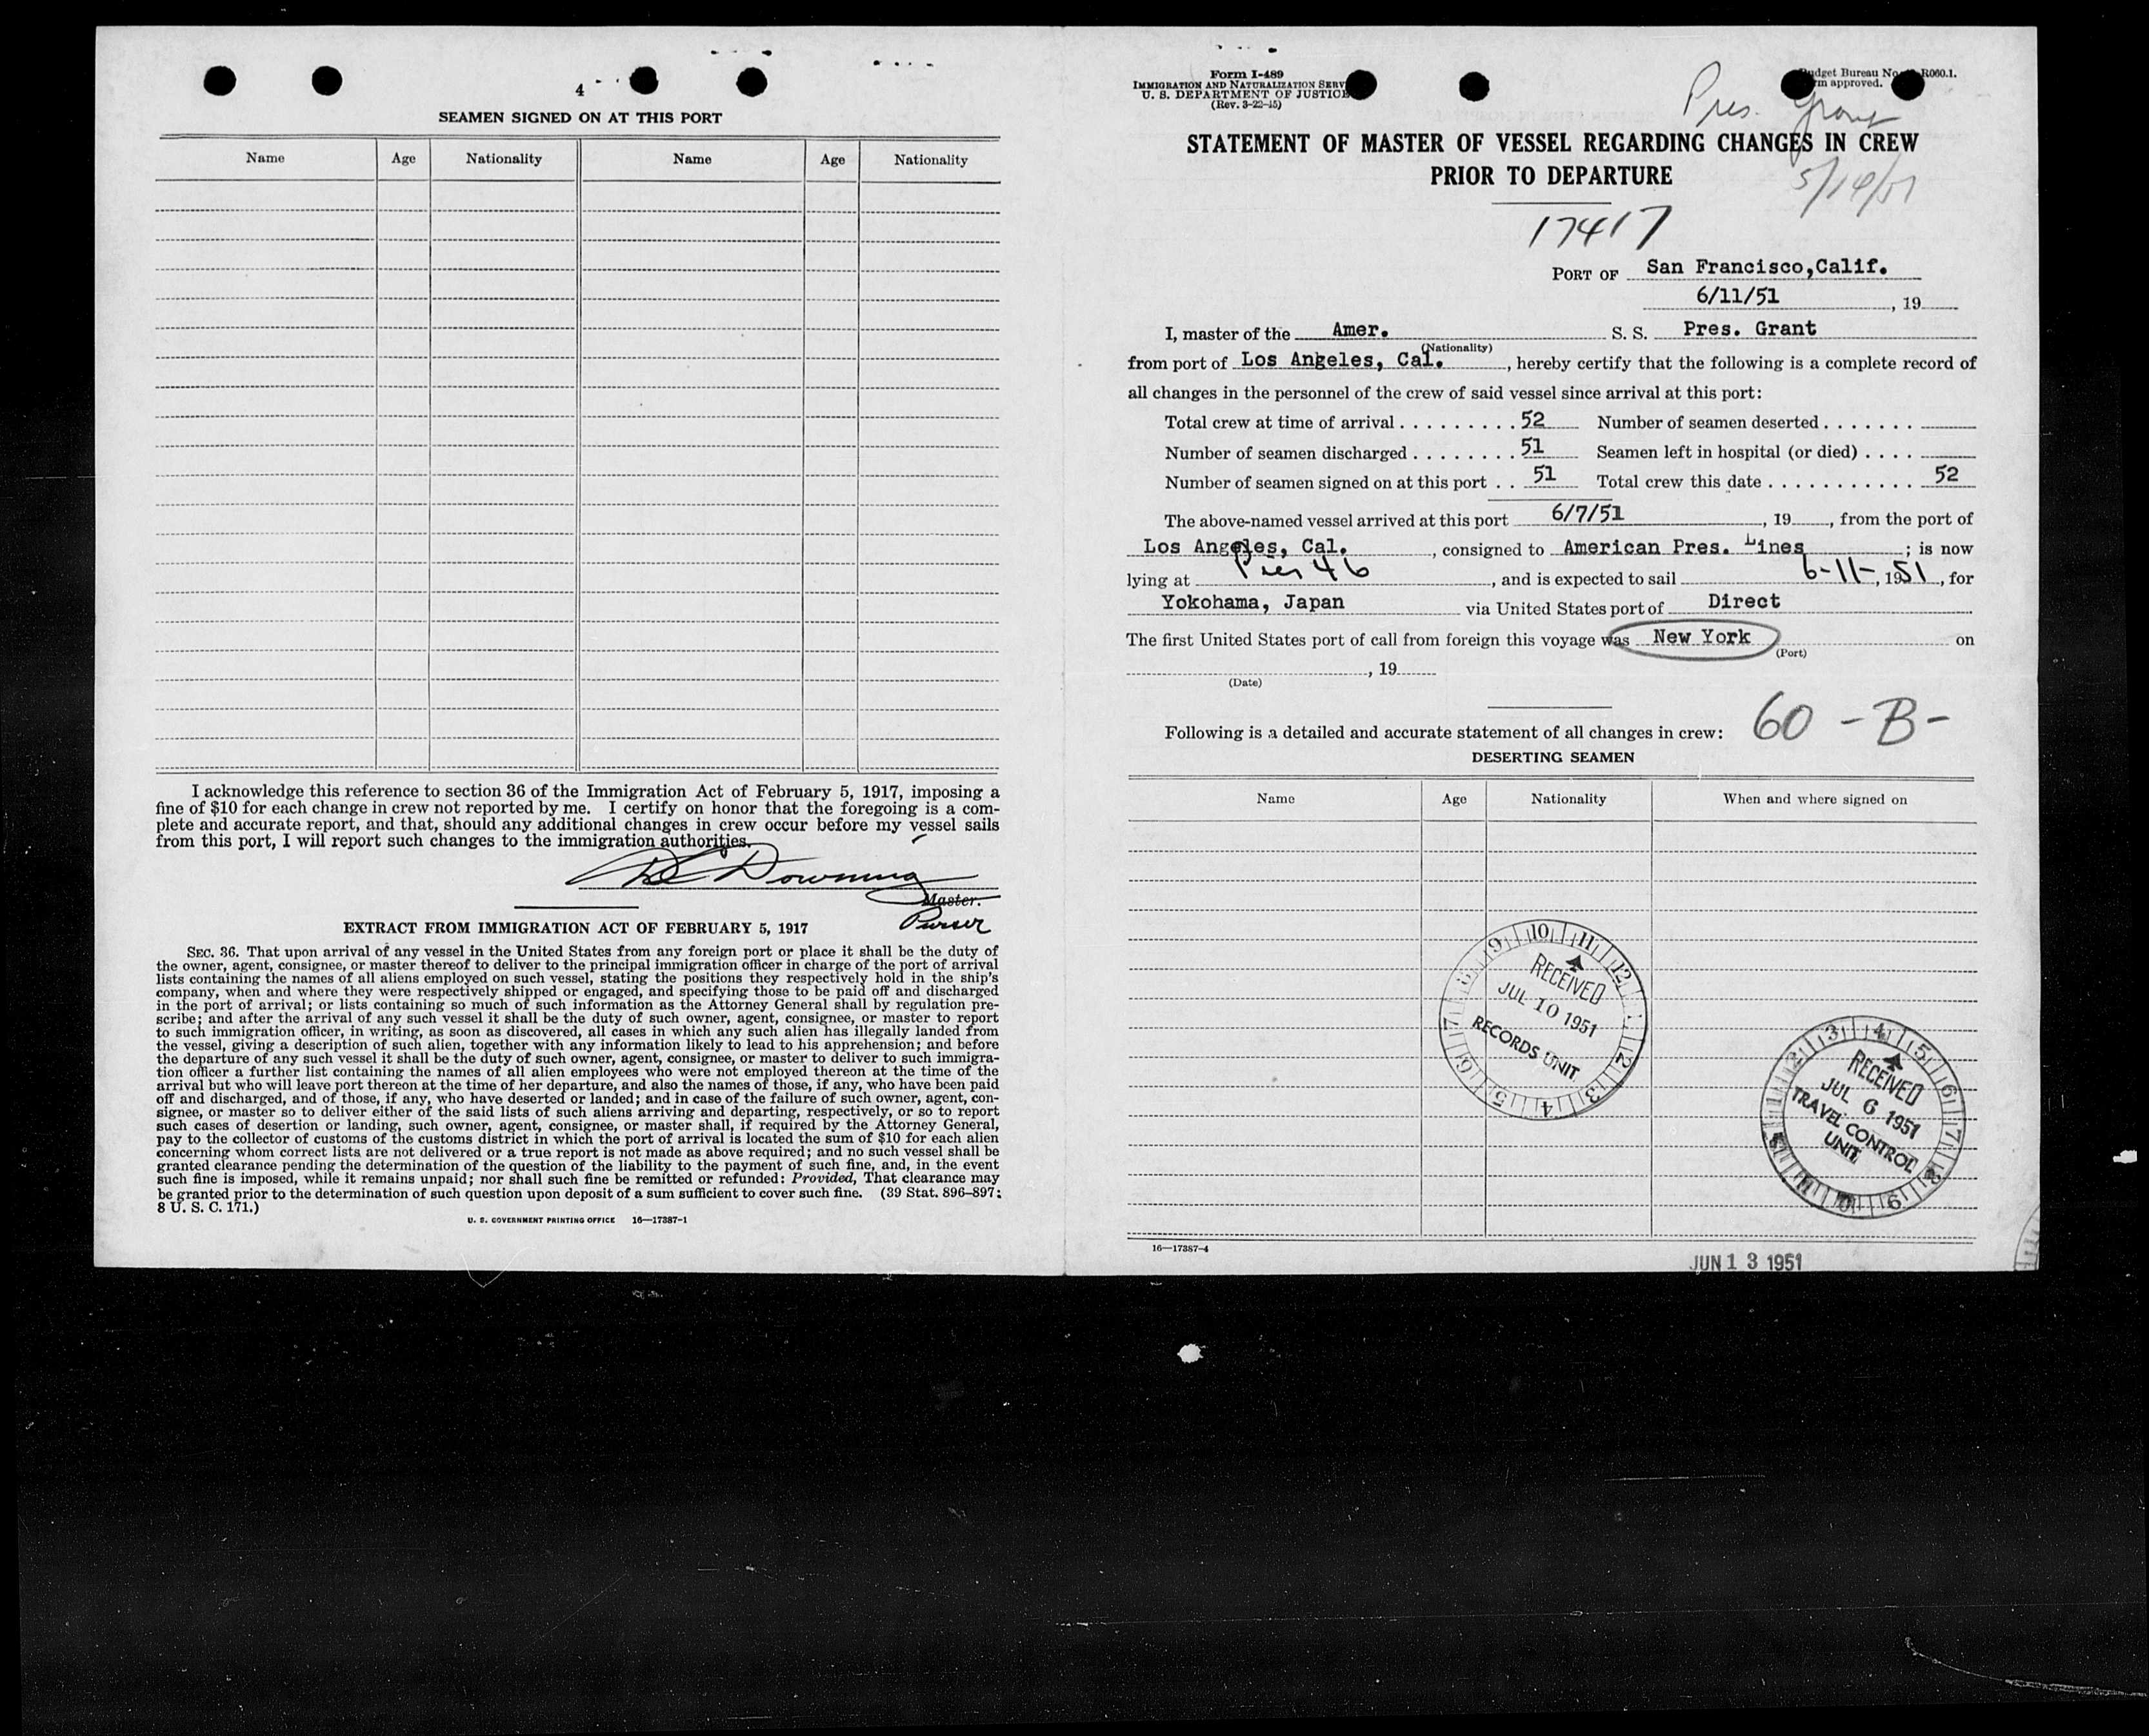 4
SEAMEN SIGNED ON AT THIS PORT
Name Age Nationality Name Age Nationality
I acknowledge this reference to section 36 of the Immigration Act of February 5, 1917, imposing a
fine of $10 for each change in crew not reported by me. I certify on honor that the foregoing is a com-
plete and accurate report, and that, should any additional changes in crew occur before my vessel sails
from this port, I will report such changes to the immigration authorities.
Downing
Master.
Purser
EXTRACT FROM IMMIGRATION ACT OF FEBRUARY 5, 1917
SEC. 36. That upon arrival of any vessel in the United States from any foreign port or place it shall be the duty of
the owner, agent, consignee, or master thereof to deliver to the principal immigration officer in charge of the port of arrival
lists containing the names of all aliens employed on such vessel, stating the positions they respectively hold in the ship's
company, when and where they were respectively shipped or engaged, and specifying those to be paid off and discharged
in the port of arrival; or lists containing so much of such information as the Attorney General shall by regulation pre-
scribe; and after the arrival of any such vessel it shall be the duty of such owner, agent, consignee, or master to report
to such immigration officer, in writing, as soon as discovered, all cases in which any such alien has illegally landed from
the vessel, giving a description of such alien, together with any information likely to lead to his apprehension; and before
the departure of any such vessel it shall be the duty of such owner, agent, consignee, or master to deliver to such immigra-
tion officer a further list containing the names of all alien employees who were not employed thereon at the time of the
arrival but who will leave port thereon at the time of her departure, and also the names of those, if any, who have been paid
off and discharged, and of those, if any, who have deserted or landed; and in case of the failure of such owner, agent, con-
signee, or master so to deliver either of the said lists of such aliens arriving and departing, respectively, or so to report
such cases of desertion or landing, such owner, agent, consignee, or master shall, if required by the Attorney General,
pay to the collector of customs of the customs district in which the port of arrival is located the sum of $10 for each alien
concerning whom correct lists are not delivered or a true report is not made as above required; and no such vessel shall be
granted clearance pending the determination of the question of the liability to the payment of such fine, and, in the event
such fine is imposed, while it remains unpaid; nor shall such fine be remitted or refunded: Provided, That clearance may
be granted prior to the determination of such question upon deposit of a sum sufficient to cover such fine. (39 Stat. 896–897;
8 U. S. C. 171.)
U. S. GOVERNMENT PRINTING OFFICE 16—17387-1
Form I-489
IMMIGRATION AND NATURALIZATION SERV
U. S. DEPARTMENT OF JUSTICE
(Rev. 3-22-45)
Budget Bureau No. R060.1.
approved.
Pres. Grant
STATEMENT OF MASTER OF VESSEL REGARDING CHANGES IN CREW
PRIOR TO DEPARTURE
17417
PORT OF San Francisco,Calif.
6/11/51, 19
I, master of the Amer. S. S. Pres. Grant
(Nationality)
from port of Los Angeles, Cal., hereby certify that the following is a complete record of
all changes in the personnel of the crew of said vessel since arrival at this port:
Total crew at time of arrival 52 Number of seamen deserted
Number of seamen discharged 51 Seamen left in hospital (or died)
Number of seamen signed on at this port 51 Total crew this date 52
The above-named vessel arrived at this port 6/7/51, 19, from the port of
Los Angeles, Cal., consigned to American Pres. Lines; is now
lying at Pier 46, and is expected to sail 6-11-, 1951, for
Yokohama, Japan via United States port of Direct
The first United States port of call from foreign this voyage was New York on
(Port)
, 19
(Date)
60 -B-
Following is a detailed and accurate statement of all changes in crew:
DESERTING SEAMEN
Name Age Nationality When and where signed on
RECEIVED
JUL 10 1951
RECORDS UNIT
RECEIVED
JUL 6 1951
TRAVEL CONTROL
UNIT
16—17387-4
JUN 13 1951